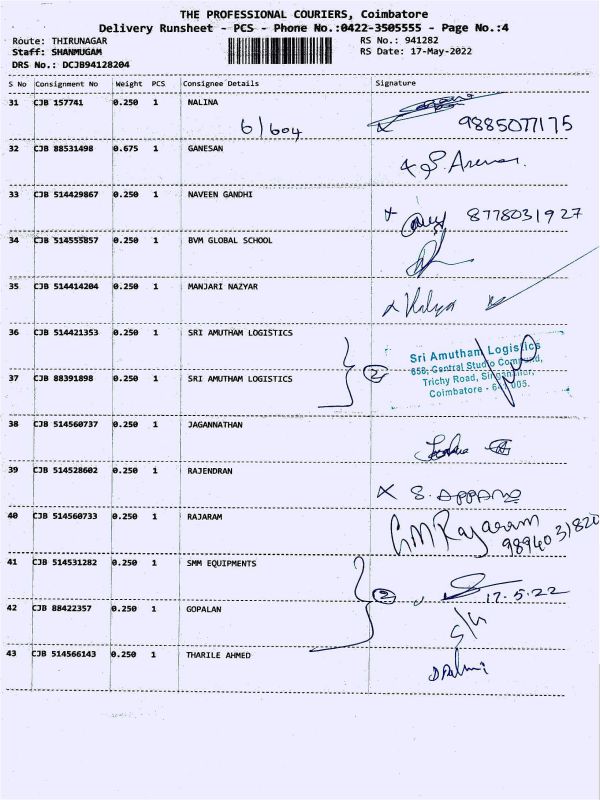 THE PROFESSIONAL COURIERS, Coimbatore
Delivery Runsheet - PCS - Phone No.:0422-3505555 - Page No.:4
Route: THIRUNAGAR RS No.: 941282
Staff: SHANMUGAM RS Date: 17-May-2022
DRS No.: DCJB94128204
S No Consignment No Weight PCS Consignee Details Signature
31 CJB 157741 0.250 1 NALINA
6/604 9885077175
32 CJB 88531498 0.675 1 GANESAN
33 CJB 514429867 0.250 1 NAVEEN GANDHI
8778031927
34 CJB 514555857 0.250 1 BVM GLOBAL SCHOOL
35 CJB 514414204 0.250 1 MANJARI NAZYAR
36 CJB 514421353 0.250 1 SRI AMUTHAM LOGISTICS
2
Sri Amutham Logistics
658, Central Studio Compound,
Trichy Road, Singanallur,
Coimbatore - 641 005.
37 CJB 88391898 0.250 1 SRI AMUTHAM LOGISTICS
38 CJB 514560737 0.250 1 JAGANNATHAN
39 CJB 514528602 0.250 1 RAJENDRAN
40 CJB 514560733 0.250 1 RAJARAM
GM Rajaram
9894031820
41 CJB 514531282 0.250 1 SMM EQUIPMENTS
2 17.5.22
42 CJB 88422357 0.250 1 GOPALAN
43 CJB 514566143 0.250 1 THARILE AHMED